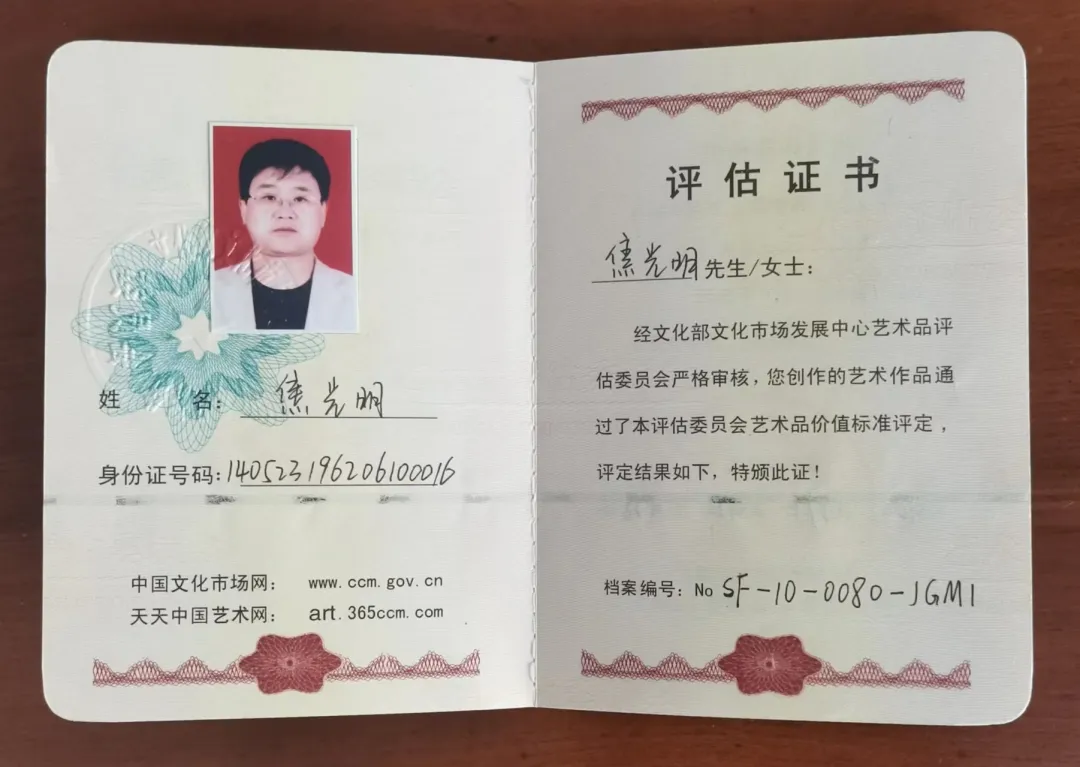 姓 名：焦光明
身份证号码：140523196206100016
中国文化市场网： www.ccm.gov.cn
天天中国艺术网： art.365ccm.com
评估证书
焦光明先生/女士：
经文化部文化市场发展中心艺术品评
估委员会严格审核，您创作的艺术作品通
过了本评估委员会艺术品价值标准评定，
评定结果如下，特颁此证！
档案编号：No SF-10-0080-JGM1